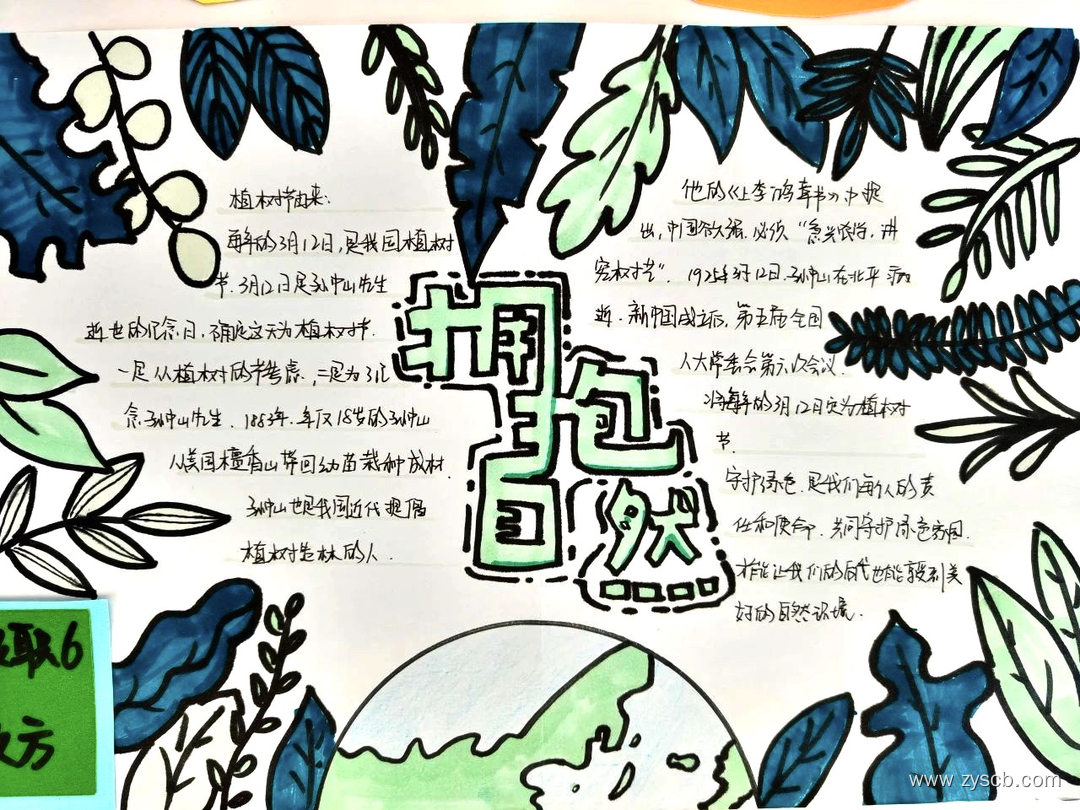 植树节由来:
每年的3月12日,是我国植树
节.3月12日是孙中山先生
逝世的纪念日,确定这天为植树节.
一是从植树的节考虑,二是为了纪
念孙中山先生.1883年,年仅18岁的孙中山
从美国檀香山带回幼苗栽种成材.
孙中山也是我国近代提倡
植树造林的人.
拥抱
自然
他的《上李鸿章书》中提
出,中国欲强,必须“急兴农学,讲
究树艺”.1925年3月12日.孙中山在北平病
逝.新中国成立后,第五届全国
人大常委会第六次会议.
将每年的3月12日定为植树
节.
守护绿色,是我们每个人的责
任和使命.共同守护绿色家园.
才能让我们的后代也能享受到美
好的自然环境.
职6
方
www.zyscb.com